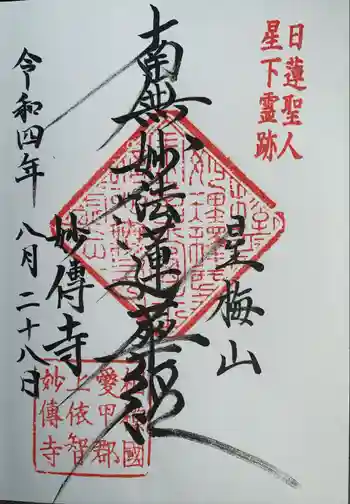 日蓮聖人
星下霊跡
南無妙法蓮華経
星梅山
妙傳寺
令和四年 八月二十八日
國
愛甲郡
上依智
妙傳寺